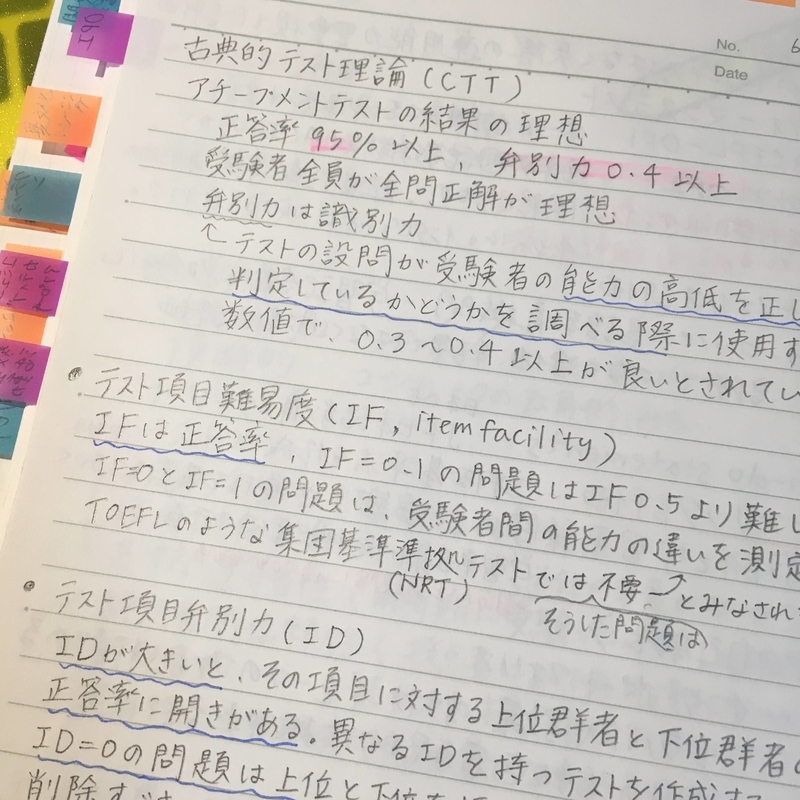 No. 6
Date
古典的テスト理論(CTT)
アチーブメントテストの結果の理想
正答率95%以上、弁別力0.4以上
受験者全員が全問正解が理想
弁別力は識別力
↑テストの設問が受験者の能力の高低を正し
判定しているかどうかを調べる際に使用す
数値で、0.3〜0.4以上が良いとされてい
・テスト項目難易度(IF, item facility)
IFは正答率、IF=0.1の問題はIF0.5より難し
IF=0とIF=1の問題は、受験者間の能力の違いを測定
TOEFLのような集団基準準拠テストでは不要とみなされ
(NRT)
そうした問題は
・テスト項目弁別力(ID)
IDが大きいと、その項目に対する上位群者と下位群者の
正答率に開きがある。異なるIDを持つテストを作成する
ID=0の問題は上位と下位を
削除すべき